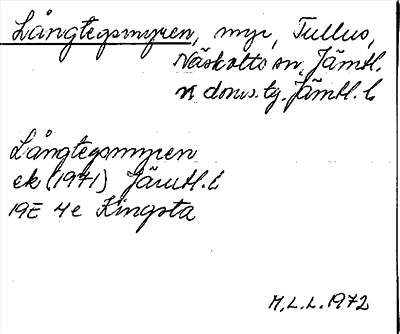 Långtegsmyren, myr, Tullus,
Näskotts sn, Jämtl.
n doms.tg. Jämtl. l
Långtegsmyren
ek (1971) Jämtl. l
19E 4e Kingsta
M.L.L. 1972